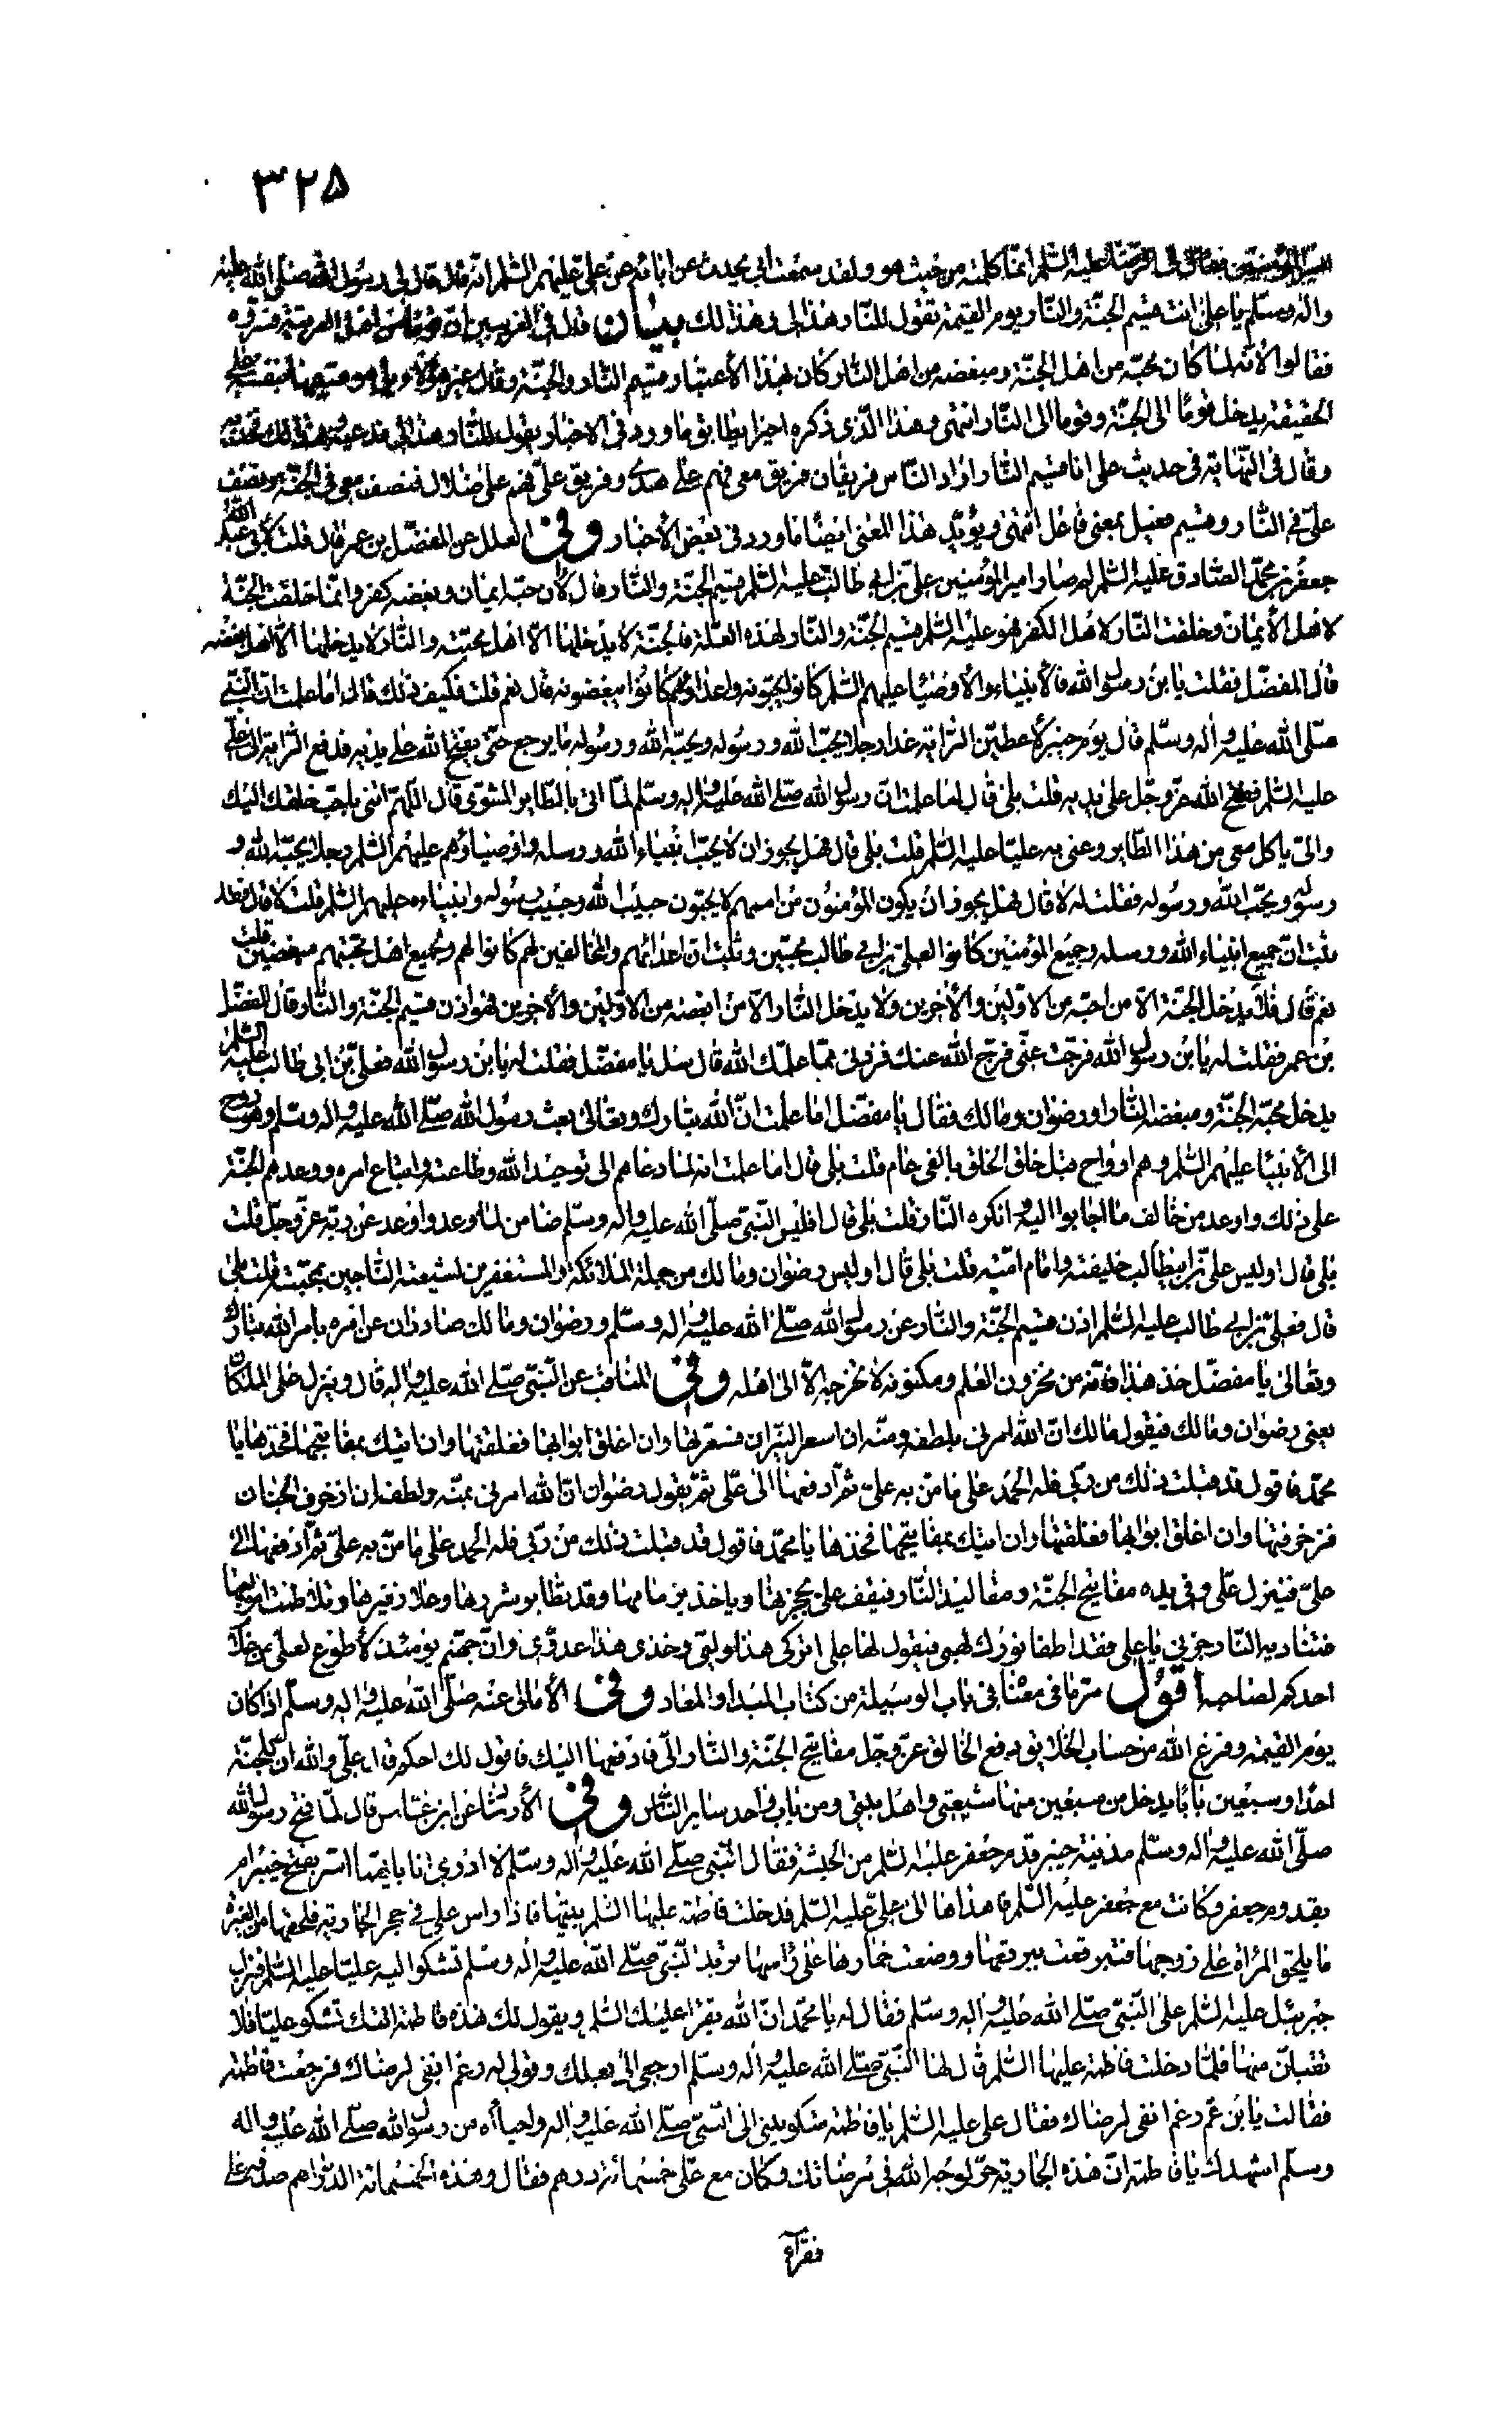 ٣٢۵
عليه السّلم انّما كلمته من حيث هو ولقد سمعت ابى يحدث عن ابائه عن علىّ عليهم السّلم انّه قال قال لى رسول الله صلّى الله عليه
واله وسلّم يا علىّ انت قسيم الجنّة والنّار يوم القيمة تقول للنّار هذا لى وهذا لك بيان قال فى الغريبين
فقالوا لأنّه لمّا كان محبّه من اهل الجنّة ومبغضه من اهل النّار كان بهذا الأعتبار قسيم النّار والجنّة وقال غير هؤلاء بل هو قسيمها بنفسه على
الحقيقة يدخل قوما الى الجنّة وقوما الى النّار انتهى وهذا الّذى ذكره اخيرا يطابق ما ورد فى الاخبار بقوله للنّار هذا لى
وقال فى النّهاية فى حديث على انا قسيم النّار اراد النّاس فريقان فريق معى فهم على هدى وفريق علىّ فهم على ضلال فنصف معى فى الجنّة ونصف
علىّ فى النّار وقسيم فعيل بمعنى فاعل انتهى ويؤيّد هذا المعنى ايضًا ما ورد فى بعض الأخبار وفى العلل عن المفضّل بن عمر قال قلت لأبى عبد الله
جعفر بن محمّد الصّادق عليه السّلم لم صار امير المؤمنين علىّ بن ابى طالب عليه السّلم قسيم الجنّة والنّار قال لأن حبّه ايمان وبغضه كفر وانّما خلقت الجنّة
لاهل الأيمان وخلقت النّار لاهل الكفر فهو عليه السّلم قسيم الجنّة والنّار لهذه العلّة فالجنّة لا يدخلها الّا اهل محبّته والنّار لا يدخلها الّا اهل بغضه
قال المفضّل فقلت يا بن رسول الله فالأنبياء والأوصياء عليهم السّلم كانوا يحبّونه واعداؤهم كانوا يبغضونه قال نعم قلت فكيف ذلك قال اما علمت انّ النّبىّ
صلّى الله عليه واله وسلّم قال يوم خيبر لأعطينّ الرّاية غدا رجلا يحبّ الله ورسوله ويحبّه الله ورسوله ما يرجع حتّى يفتح الله على يديه فدفع الرّاية الى علىّ
عليه السّلم ففتح الله عزّ وجلّ على يديه قلت بلى قال اما علمت انّ رسول الله صلّى الله عليه واله وسلّم لمّا اتى بالطّاير المشوى قال اللّهمّ ائتنى باحبّ خلقك اليك
والىّ ياكل معى من هذا الطّاير وعنى به عليّا عليه السّلم قلت بلى قال فهل يجوز ان لا يحبّ انبياء الله ورسله واوصياؤهم عليهم السّلم رجلا يحبّه الله و
رسوله ويحبّ الله ورسوله فقلت له لا قال فهل يجوز ان يكون المؤمنون من اممهم لا يحبّون حبيب الله وحبيب رسوله وانبياءه عليهم السّلم قلت لا قال فقد
ثبت انّ جميع انبياء الله ورسله وجميع المؤمنين كانوا لعلىّ بن ابى طالب محبّين وثبت انّ اعدائهم والمخالفين لهم كانوا لهم ولجميع اهل محبّتهم مبغضين قلت
نعم قال فلا يدخل الجنّة الّا من احبّه من الاوّلين والأخرين ولا يدخل النّار الّا من ابغضه من الاوّلين والأخرين فهو اذن قسيم الجنّة والنّار قال المفضّل
بن عمر فقلت له يا بن رسول الله فرّجت عنّى فرّج الله عنك فزدنى ممّا علّمك الله قال سل يا مفضّل فقلت له يا بن رسول الله فعلىّ بن ابى طالب عليه السّلم
يدخل محبّه الجنّة ومبغضه النّار او رضوان ومالك فقال يا مفضّل اما علمت انّ الله تبارك وتعالى بعث رسول الله صلّى الله عليه واله وسلّم وهو روح
الى الأنبيا عليهم السّلم وهم ارواح قبل خلق الخلق بالفى عام قلت بلى قال اما علمت انه لمّا دعاهم الى توحيد الله وطاعته واتباع امره ووعدهم الجنّة
على ذلك واوعد من خالف ما اجابوا اليه وانكره النّار قلت بلى قال افليس النّبىّ صلّى الله عليه واله وسلّم ضامن لما وعد واوعد عن ربّه عزّ وجلّ قلت
بلى قال اوليس علىّ بن ابيطالب خليفته وامام امّته قلت بلى قال اوليس رضوان ومالك من جملة الملائكة والمستغفرين لشيعته النّاجين بمحبّته قلت بلى
قال فعلىّ بن ابى طالب عليه السّلم اذن قسيم الجنّة والنّار عن رسول الله صلّى الله عليه واله وسلّم ورضوان ومالك صادران عن امره بامر الله تبارك
وتعالى يا مفضّل خذ هذا فانّه من مخزون العلم ومكنونه لا تخرجه الّا الى اهله وفى المناقب عن النّبىّ صلّى الله عليه واله قال وينزل علىّ الملكان
يعنى رضوان ومالك فيقول مالك انّ الله امرنى بلطفه ومنّه ان اسعر النّيران فسعرتها وان اغلق ابوابها فغلقتها وان اتيك بمفاتيحها فخذها يا
محمّد فاقول قد قبلت ذلك من ربّى فله الحمد على ما منّ به علىّ ثمّ ادفعها الى علىّ ثمّ يقول رضوان انّ الله امرنى بمنّه ولطفه ان ازخرف الجنان
فزخرفتها وان اغلق ابوابها فغلقتها وان اتيك بمفاتيحها فخذها يا محمّد فاقول قد قبلت ذلك من ربّى فله الحمد على ما منّ به علىّ ثمّ ادفعها الى
علىّ فينزل علىّ وفى يده مفاتيح الجنّة ومقاليد النّار فيقف على بحجزتها وياخذ بزمامها وقد تطاير شررها وعلا زفيرها
فتناديه النّار جزنى يا على فقد اطفا نورك لهبى فيقول لها على اتركى هذا وليّى وخذى هذا عدوّى وانّ جهنّم يومئذ لأطوع لعلى من غلام
احدكم لصاحبه اقول مرّ ما فى معناه فى باب الوسيلة من كتاب المبدا والمعاد وفى الأمالى عنه صلّى الله عليه واله وسلّم اذا كان
يوم القيمة وفرغ الله من حساب الخلايق دفع الخالق عزّ وجلّ مفاتيح الجنّة والنّار الىّ فادفعها اليك فاقول لك احكم قال علىّ والله ان للجنّة
احدا وسبعين بابًا يدخل من سبعين منها شيعتى واهل بيتى ومن باب واحد ساير النّاس وفى الأرشاد عن ابن عبّاس قال لمّا فتح رسول الله
صلّى الله عليه واله وسلّم مدينة خيبر قدم جعفر عليه السّلم من الحبشة فقال النّبىّ صلّى الله عليه واله وسلّم لا ادرى انا بايّهما اسر بفتح خيبر ام
بقدوم جعفر وكانت مع جعفر عليه السّلم فاهداها الى علىّ عليه السّلم فدخلت فاطمة عليها السّلم بيتها فاذا راس على فى حجر الجارية فلحقها من الغيرة
ما يلحق المراة على زوجها فتبرقعت ببرقعها ووضعت خمارها على راسها تريد النّبىّ صلّى الله عليه واله وسلم تشكوا اليه عليّا عليه السّلم فنزل
جبرئيل عليه السّلم على النّبىّ صلّى الله عليه واله وسلّم فقال له يا محمّد انّ الله يقرا عليك السّلم ويقول لك هذه فاطمة اتتك تشكو عليّا فلا
تقبلنّ منها فلمّا دخلت فاطمة عليها السّلم قال لها النّبىّ صلّى الله عليه واله وسلّم ارجعى الى بعلك وقولى له رغم انفى لرضاك فرجعت فاطمة
فقالت يا بن عمّ رغم انفى لرضاك فقال على عليه السّلم يا فاطمة شكوتينى الى النّبىّ صلّى الله عليه واله واحياءاه من رسول الله صلّى الله عليه واله
وسلّم اشهدك يا فاطمة انّ هذه الجارية حرّ لوجه الله فى مرضاتك وكان مع علىّ خمسمائة درهم فقال وهذه الخمسمائة الدّراهم صدقة على
فقراء